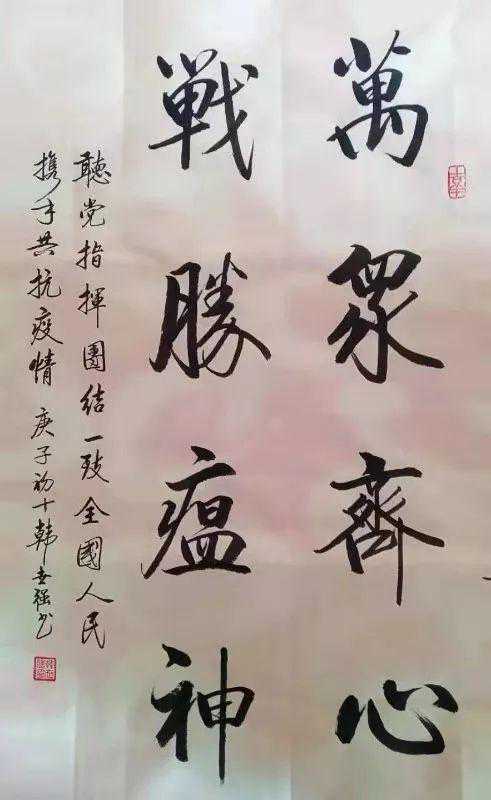 萬眾齊心
戦勝瘟神
聽党指揮團结一致全國人民
携手共抗疫情 庚子初十韩世强书